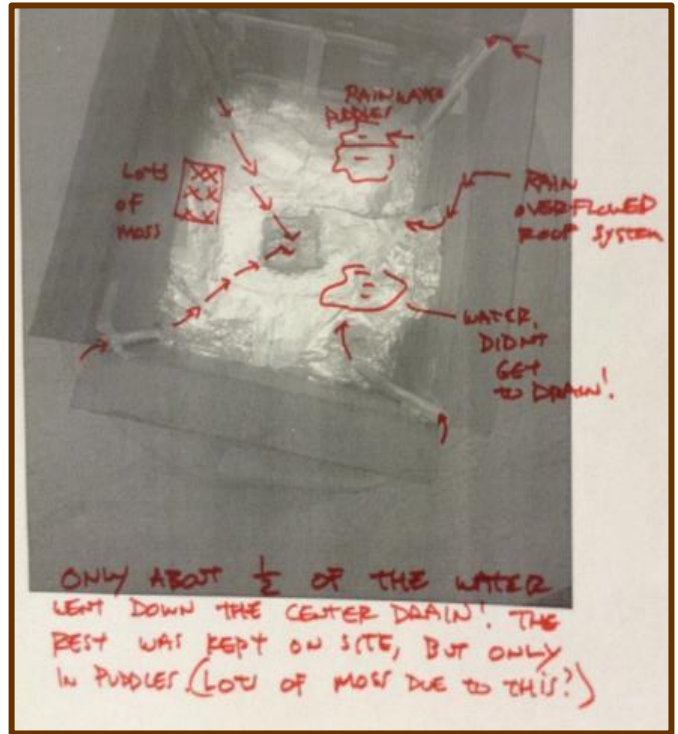 RAINWATER
PUDDLES
LOTS
OF
MOSS
RAIN
OVERFLOWED
ROOF SYSTEM
WATER,
DIDNT
GET
TO DRAIN!
ONLY ABOUT ½ OF THE WATER
WENT DOWN THE CENTER DRAIN! THE
REST WAS KEPT ON SITE, BUT ONLY
IN PUDDLES. (LOTS OF MOSS DUE TO THIS?)